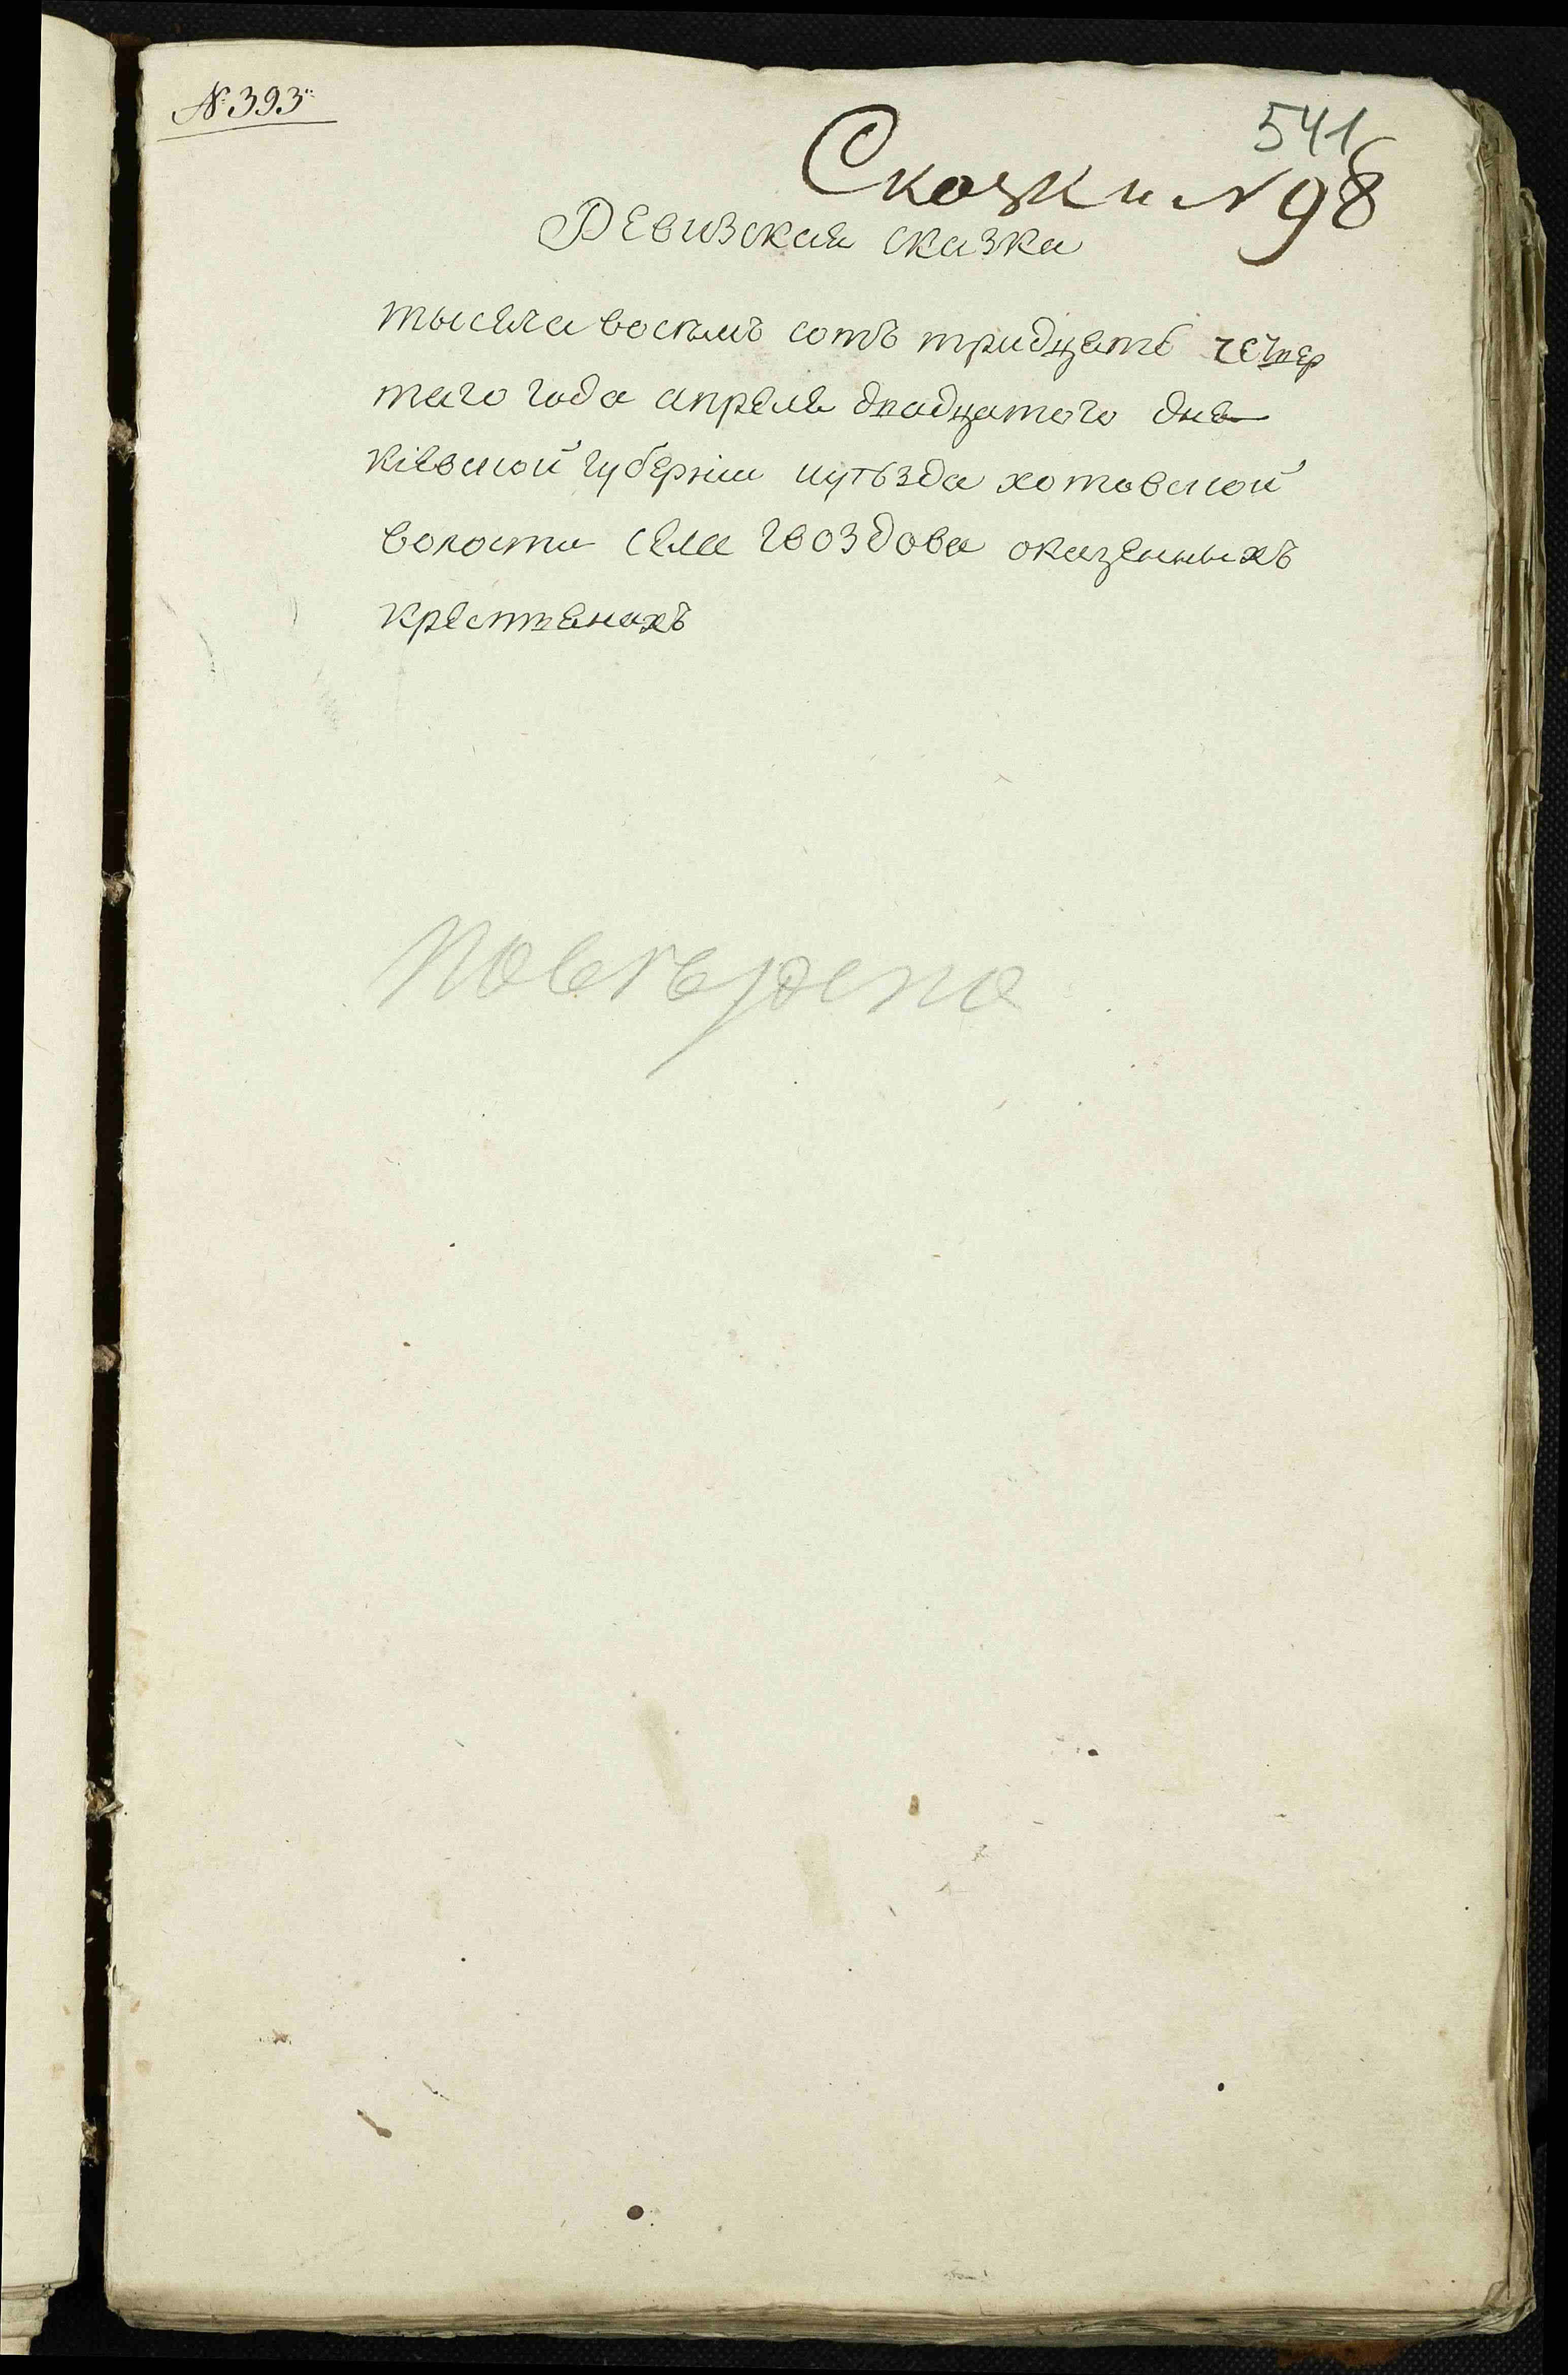 № 393
541
Сказки N 98
Ревизская сказка
тысяча восемъ сотъ тридцать четвер
таго года апреля двадцатого дня
кіевской губерніи иуѣзда хотовской
волости села гвоздова оказенныхъ
крестянахъ